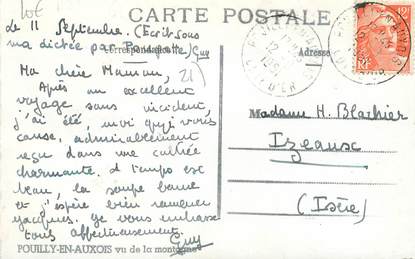 CARTE POSTALE
Correspondance
Adresse
le 11 Septembre. (Ecrit sous
ma dictée par Guy
Ma chère Maman,
Après un excellent
voyage sans incident,
j'ai été, moi qui vous
cause, admirablement
reçu dans une
charmante. Le temps est
beau, la soupe bonne
et j'espère bien ramener
Jacques. Je vous embrasse
tous affectueusement.
Guy
Madame H. Blachier
Izeaux
(Isère)
POUILLY-EN-AUXOIS vu de la montagne